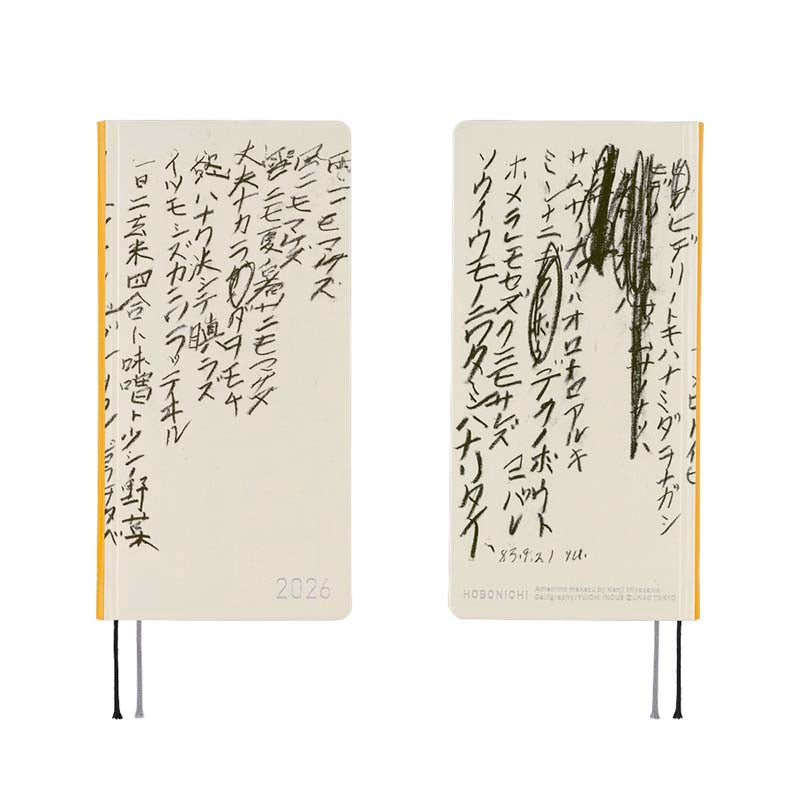 雨ニモマケズ
風ニモマケズ
雪ニモ夏ノ暑サニモマケヌ
丈夫ナカラダヲモチ
慾ハナク決シテ瞋ラズ
イツモシズカニワラッテヰル
一日ニ玄米四合ト味噌ト少シノ野菜
2026
ヒデリノトキハナミダヲナガシ
サムサノナツハオロオロアルキ
ミンナニデクノボウト
ヨバレ
ホメラレモセズクニモサレズ
ソウイウモノニワタシハナリタイ
83.9.21 yu.
HOBONICHI
Amenimo makezu by Kenji Miyazawa
Calligraphy:YUICHI INOUE ©UNAC TOKYO